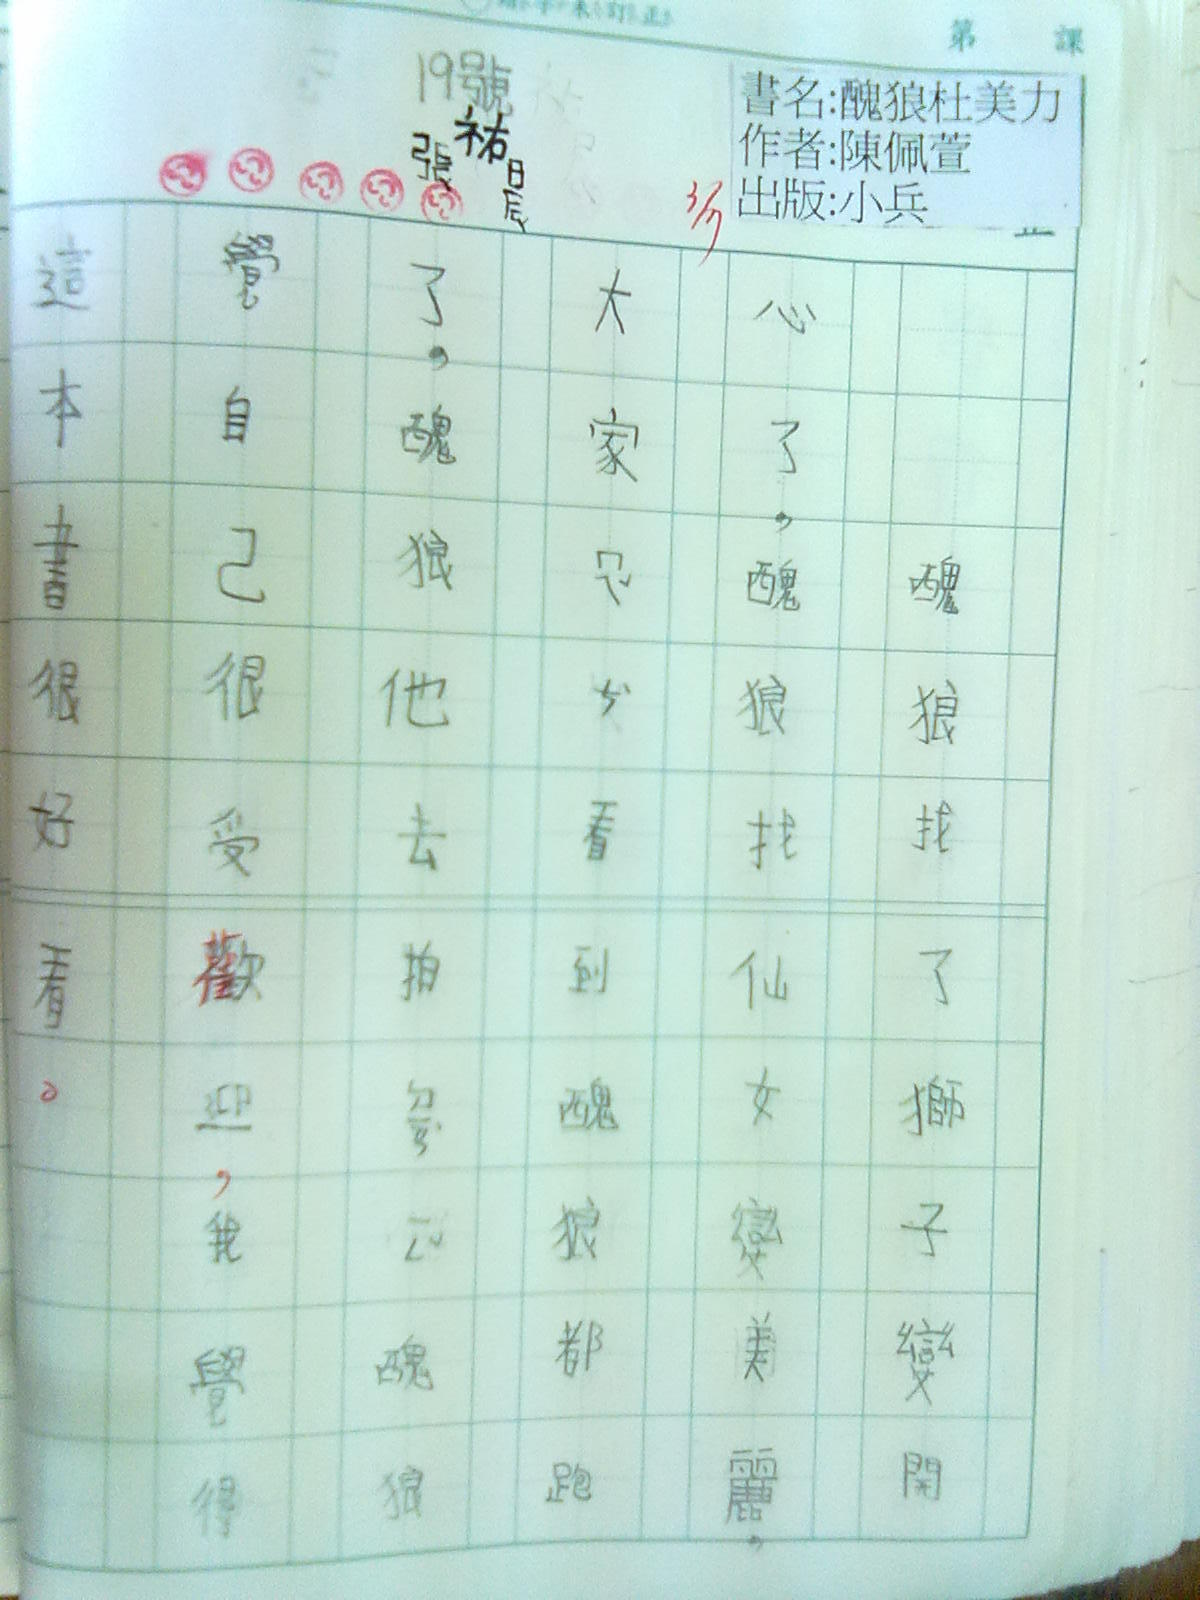 第 課
書名:醜狼杜美力
作者:陳佩萱
出版:小兵
19號
張祐晨
3/7
醜狼找了獅子變開
心了，醜狼找仙女變美麗，
大家ㄇㄟˇㄘˋ看到醜狼都跑
了，醜狼他去拍 醜狼
覺自己很受歡迎，我覺得
這本書很好看。